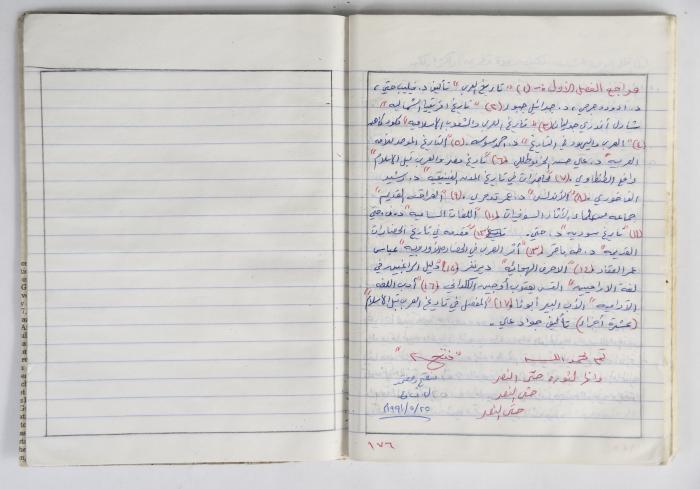 مراجع الفصل الأول :- (١) "تاريخ العرب" تأليف د. فيليب حتي،
د. ادورد جرجي، د. جبرائيل جبور (٢) "تاريخ افريقيا الشمالية"
شارل أندري جوليان (٣) "تاريخ العرب والشعوب الاسلامية" كلود كاهن
(٤) "العرب واليهود في التاريخ" د. احمد سوسه (٥) "التاريخ الموحد للأمة
العربية" د. علي حسني الخربوطلي (٦) "تاريخ مصر والعرب قبل الاسلام"
رافع الطنطاوي (٧) "محاضرات في تاريخ المدن الفينيقية" د. رشيد
الفاخوري (٨) "الأندلس" د. عمر (٩) "العراق القديم"
جماعه من علماء الآثار السوفيات (١٠) "اللغات السامية"
(١١) "تاريخ سورية" د. حتي. (١٢) "مقدمة في تاريخ الحضارات
القديمة" د. طه باقر (١٣) "أثر العرب في الحضارة الأوروبية" عباس
محمود العقاد (١٤) "الأحرف الهجائية" ديرنغر (١٥) "دليل الراغبين في
لغة الآراميين" القس يعقوب أوجين الكلداني (١٦) "أدب اللغة
الآرامية" الأب البير أبونا (١٧) "المفصل في تاريخ العرب قبل الاسلام"
(عشرة أجزاء) تأليف جواد علي.
تم بحمد الله "فتح"
وانها لثورة حتى النصر
حتى النصر
حتى النصر
١٩٩١/٥/٢٥
١٧٦